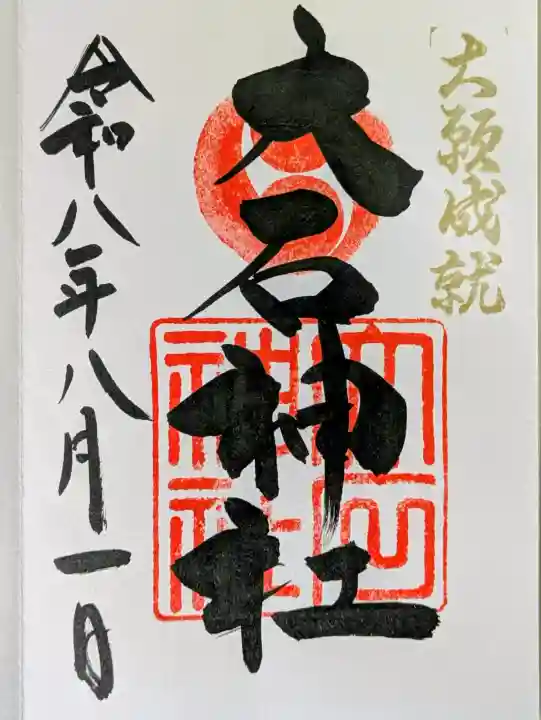 大願成就
大石神社
大石神社
令和八年八月一日